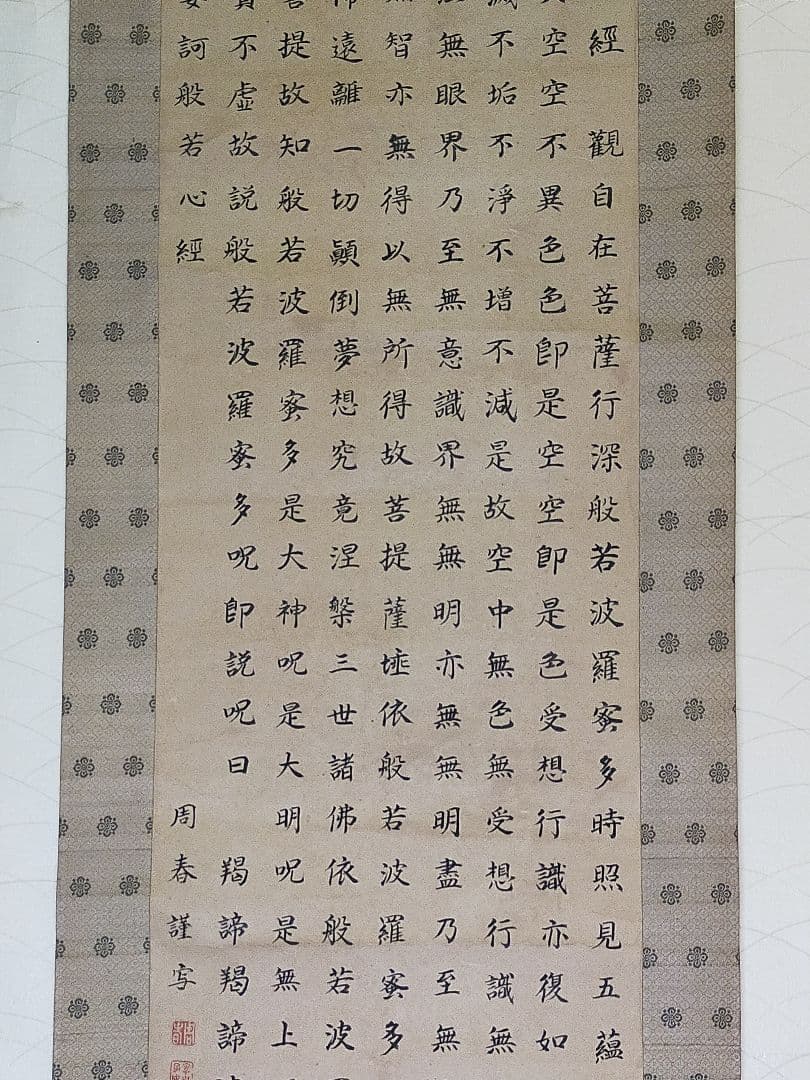 經 觀自在菩薩行深般若波羅蜜多時照見五蘊
空空不異色色即是空空即是色受想行識亦復如
滅不垢不淨不增不減是故空中無色無受想行識無
無眼界乃至無意識界無無明亦無無明盡乃至無
智亦無得以無所得故菩提薩埵依般若波羅蜜多
遠離一切顛倒夢想究竟涅槃三世諸佛依般若波
提故知般若波羅蜜多是大神呪是大明呪是無上
不虛故説般若波羅蜜多呪即説呪曰 羯諦羯諦
訶般若心經
周春謹写